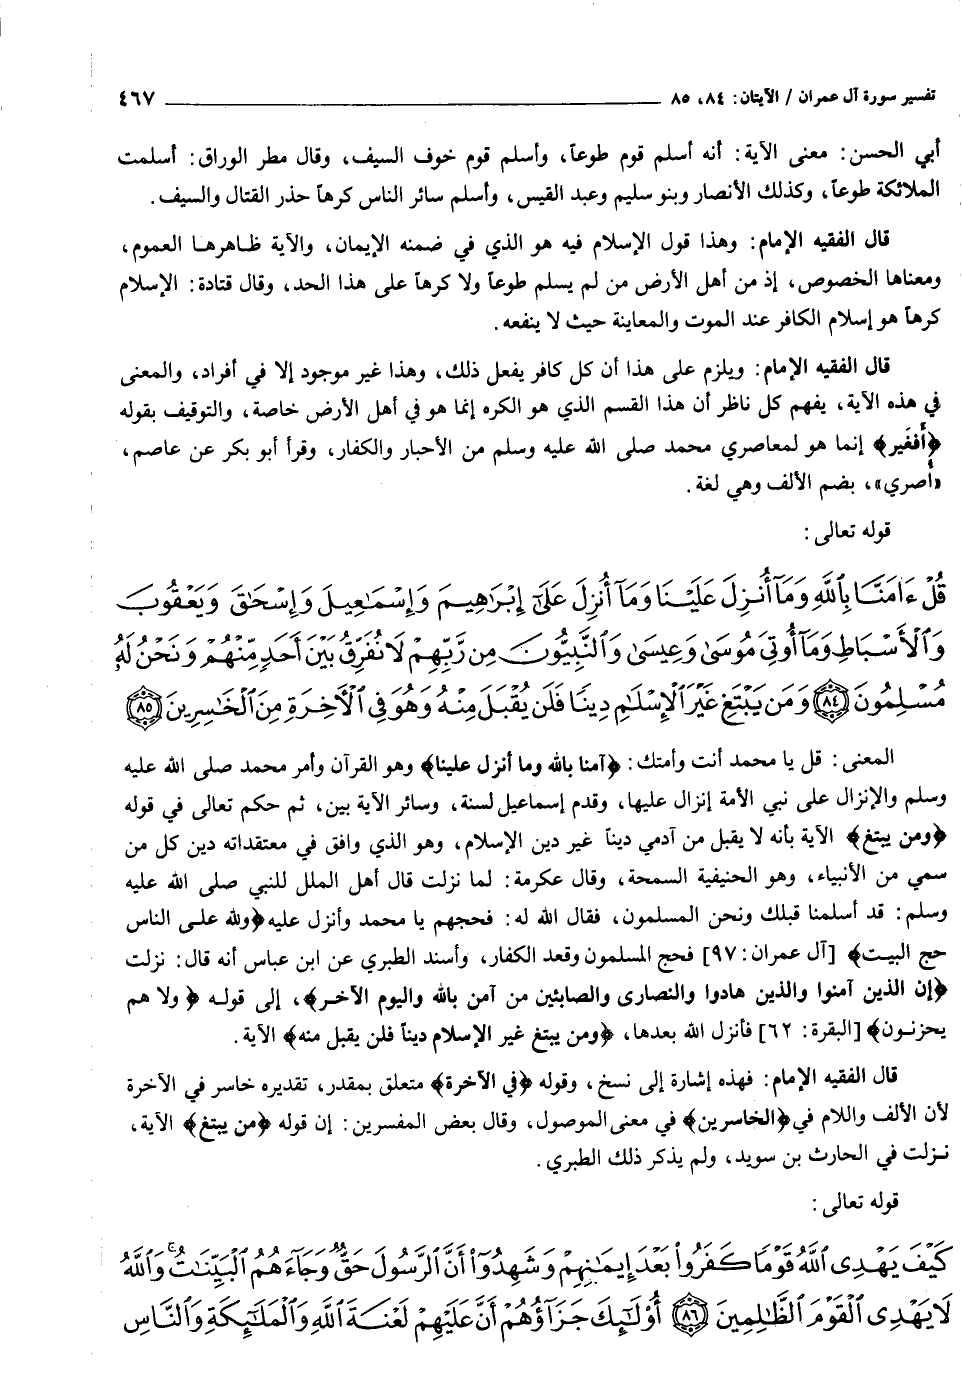 تفسير سورة آل عمران / الآيتان: ٨٤، ٨٥ ـــــــــــ ٤٦٧
أبي الحسن: معنى الآية: أنه أسلم قوم طوعاً، وأسلم قوم خوف السيف، وقال مطر الوراق: أسلمت
الملائكة طوعاً، وكذلك الأنصار وبنو سليم وعبد القيس، وأسلم سائر الناس كرهاً حذر القتال والسيف.
قال الفقيه الإمام: وهذا قول الإسلام فيه هو الذي في ضمنه الإيمان، والآية ظاهرها العموم،
ومعناها الخصوص، إذ من أهل الأرض من لم يسلم طوعاً ولا كرهاً على هذا الحد، وقال قتادة: الإسلام
كرهاً هو إسلام الكافر عند الموت والمعاينة حيث لا ينفعه.
قال الفقيه الإمام: ويلزم على هذا أن كل كافر يفعل ذلك، وهذا غير موجود إلا في أفراد، والمعنى
في هذه الآية، يفهم كل ناظر أن هذا القسم الذي هو الكره إنما هو في أهل الأرض خاصة، والتوقيف بقوله
﴿أفغير﴾ إنما هو لمعاصري محمد صلى الله عليه وسلم من الأحبار والكفار، وقرأ أبو بكر عن عاصم،
«أُصري»، بضم الألف وهي لغة.
قوله تعالى:
قُلْ ءَامَنَّا بِٱللَّهِ وَمَآ أُنزِلَ عَلَيْنَا وَمَآ أُنزِلَ عَلَىٰٓ إِبْرَٰهِيمَ وَإِسْمَٰعِيلَ وَإِسْحَٰقَ وَيَعْقُوبَ
وَٱلْأَسْبَاطِ وَمَآ أُوتِىَ مُوسَىٰ وَعِيسَىٰ وَٱلنَّبِيُّونَ مِن رَّبِّهِمْ لَا نُفَرِّقُ بَيْنَ أَحَدٍ مِّنْهُمْ وَنَحْنُ لَهُۥ
مُسْلِمُونَ ٨٤ وَمَن يَبْتَغِ غَيْرَ ٱلْإِسْلَٰمِ دِينًا فَلَن يُقْبَلَ مِنْهُ وَهُوَ فِى ٱلْآخِرَةِ مِنَ ٱلْخَٰسِرِينَ ٨٥
المعنى: قل يا محمد أنت وأمتك: ﴿آمنا بالله وما أنزل علينا﴾ وهو القرآن وأمر محمد صلى الله عليه
وسلم والإنزال على نبي الأمة إنزال عليها، وقدم إسماعيل لسنة، وسائر الآية بين، ثم حكم تعالى في قوله
﴿ومن يبتغ﴾ الآية بأنه لا يقبل من آدمي ديناً غير دين الإسلام، وهو الذي وافق في معتقداته دين كل من
سمي من الأنبياء، وهو الحنيفية السمحة، وقال عكرمة: لما نزلت قال أهل الملل للنبي صلى الله عليه
وسلم: قد أسلمنا قبلك ونحن المسلمون، فقال الله له: فحجهم يا محمد وأنزل عليه ﴿ولله على الناس
حج البيت﴾ [آل عمران: ٩٧] فحج المسلمون وقعد الكفار، وأسند الطبري عن ابن عباس أنه قال: نزلت
﴿إن الذين آمنوا والذين هادوا والنصارى والصابئين من آمن بالله واليوم الآخر﴾، إلى قوله ﴿ولا هم
يحزنون﴾ [البقرة: ٦٢] فأنزل الله بعدها، ﴿ومن يبتغ غير الإسلام ديناً فلن يقبل منه﴾ الآية.
قال الفقيه الإمام: فهذه إشارة إلى نسخ، وقوله ﴿في الآخرة﴾ متعلق بمقدر، تقديره خاسر في الآخرة
لأن الألف واللام في ﴿الخاسرين﴾ في معنى الموصول، وقال بعض المفسرين: إن قوله ﴿من يبتغ﴾ الآية،
نزلت في الحارث بن سويد، ولم يذكر ذلك الطبري.
قوله تعالى:
كَيْفَ يَهْدِى ٱللَّهُ قَوْمًا كَفَرُوا۟ بَعْدَ إِيمَٰنِهِمْ وَشَهِدُوٓا۟ أَنَّ ٱلرَّسُولَ حَقٌّ وَجَآءَهُمُ ٱلْبَيِّنَٰتُ ۚ وَٱللَّهُ
لَا يَهْدِى ٱلْقَوْمَ ٱلظَّٰلِمِينَ ٨٦ أُو۟لَٰٓئِكَ جَزَآؤُهُمْ أَنَّ عَلَيْهِمْ لَعْنَةَ ٱللَّهِ وَٱلْمَلَٰٓئِكَةِ وَٱلنَّاسِ